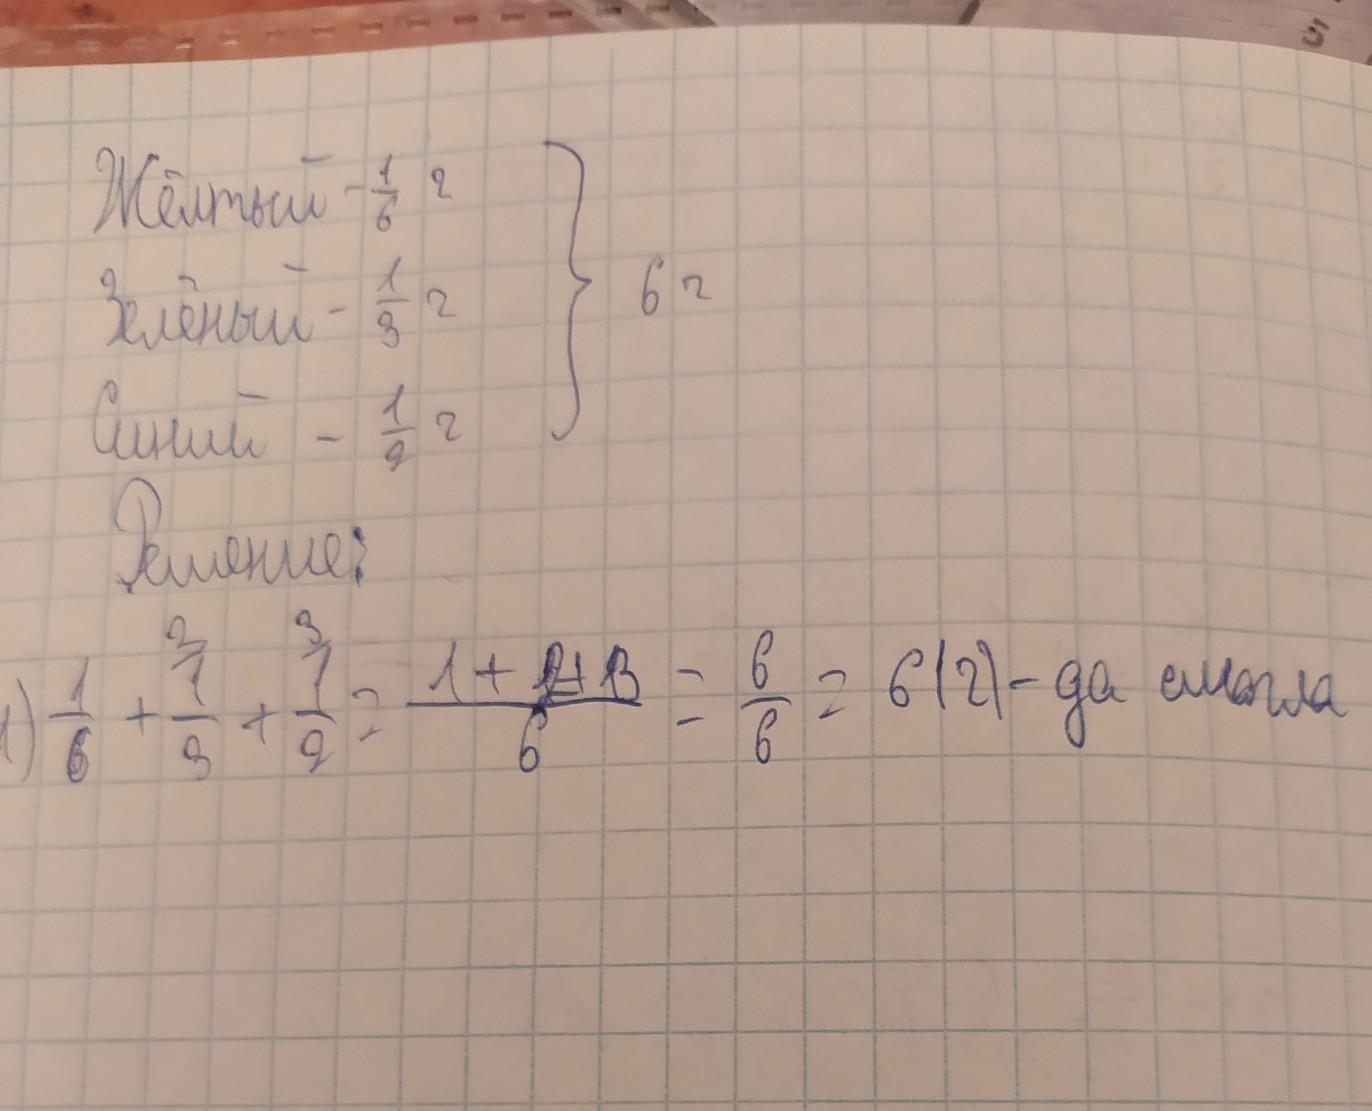 Жёлтый - 1/6 г
Зелёный - 1/3 г } 6 г
Синий - 1/2 г
Решение:
1) 1/6 + 1/3 + 1/2 = 1+2+3/6 = 6/6 = 6(г) - да смогла